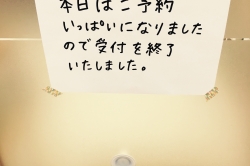 本日はご予約
いっぱいになりました
ので受付を終了
いたしました。